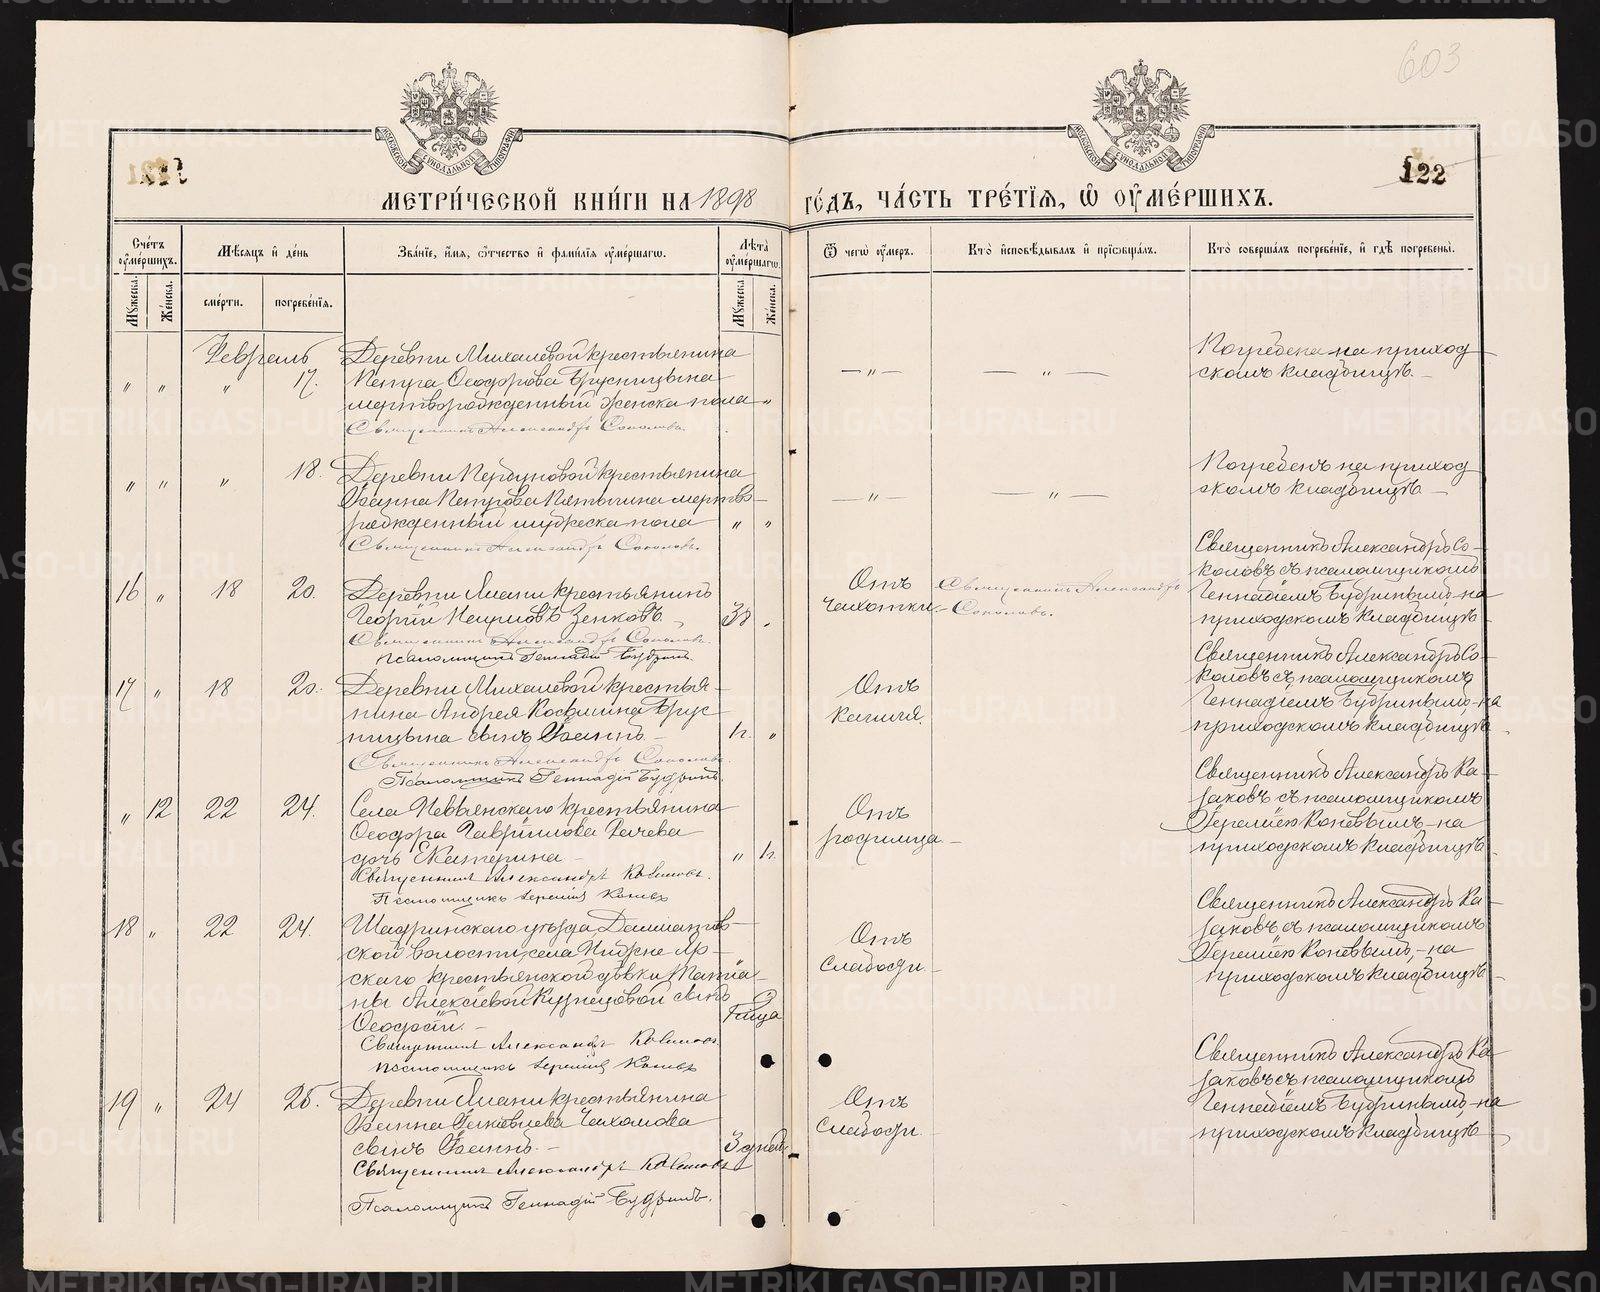 603
122
МЕТРИ́ЧЕСКОЙ КНИ́ГИ НА 1898 ГО́ДЪ, ЧА́СТЬ ТРЕ́ТІЯ, Ѡ ОУМЕ́РШИХЪ.
Сче́тъ оуме́ршихъ.
Мѣсяцъ и де́нь
Зва́ніе, и́мя, о́тчество и фами́лія оуме́ршагѡ.
Лѣта̀ оуме́ршагѡ.
Ѿ чегѡ̀ оу́меръ.
Кто̀ исповѣ́дывалъ и пріобща́лъ.
Кто̀ соверша́лъ погребе́ніе, и гдѣ̀ погребены̀.
Мужеска.
Же́нска.
сме́рти.
погребе́нія.
Мужеска.
Же́нска.
Февраль
„ „ „ 17.
Деревни Михалевой крестьянина
Петра Ѳеодорова Брусницына
мертворожденный женска пола „
Священникъ Александръ Соколовъ.
— „ — — „ —
Погребена на приход
скомъ кладбищѣ. —
„ „ „ 18.
Деревни крестьянина
Іоанна Петрова Пятыгина мертво
рожденный мужеска пола „ „
Священникъ Александръ Соколовъ.
— „ — — „ —
Погребенъ на приход
скомъ кладбищѣ —
16 „ 18 20.
Деревни Ялани крестьянинъ
Георгій Зенковъ 38 „
Священникъ Александръ Соколовъ.
Псаломщикъ Геннадій Будринъ.
Отъ
чахотки
Священникъ Александръ
Соколовъ.
Священникъ Александръ Со-
коловъ съ псаломщикомъ
Геннадіемъ Будринымъ на
приходскомъ кладбищѣ
17 „ 18 20.
Деревни Михалевой крестья-
нина Андрея Косьмина Брус
ницына сынъ Іоаннъ — „
Священникъ Александръ Соколовъ.
Псаломщикъ Геннадій Будринъ.
Отъ
кашля.
Священникъ Александръ Со-
коловъ съ псаломщикомъ
Геннадіемъ Будринымъ на
приходскомъ кладбищѣ
„ 12 22 24.
Села Невьянскаго крестьянина
Ѳеодора Гавріилова Рачева
дочь Екатерина — „
Священникъ Александръ
Псаломщикъ Іеремія Коневъ
Отъ
родимца. —
Священникъ Александръ Ка-
заковъ съ псаломщикомъ
Іереміею Коневымъ на
приходскомъ кладбищѣ
18 „ 22 24.
Шадринскаго уѣзда,
ской волости, села Нижне Яр-
скаго крестьянской дѣвки Татіа
ны Алексіевой Кузнецовой сынъ
Ѳеодотій. —
Священникъ Александръ
Псаломщикъ Іеремія Коневъ
Отъ
слабости —
Священникъ Александръ Ка-
заковъ съ псаломщикомъ
Іереміею Коневымъ, на
приходскомъ кладбищѣ
19 „ 24 25.
Деревни Ялани крестьянина
Іоанна
сынъ Іоаннъ. — 3 дней
Священникъ Александръ
Псаломщикъ Геннадій Будринъ.
Отъ
слабости.
Священникъ Александръ Ка-
заковъ съ псаломщикомъ
Геннадіемъ Будринымъ, на
приходскомъ кладбищѣ
METRIKI.GASO-URAL.RU